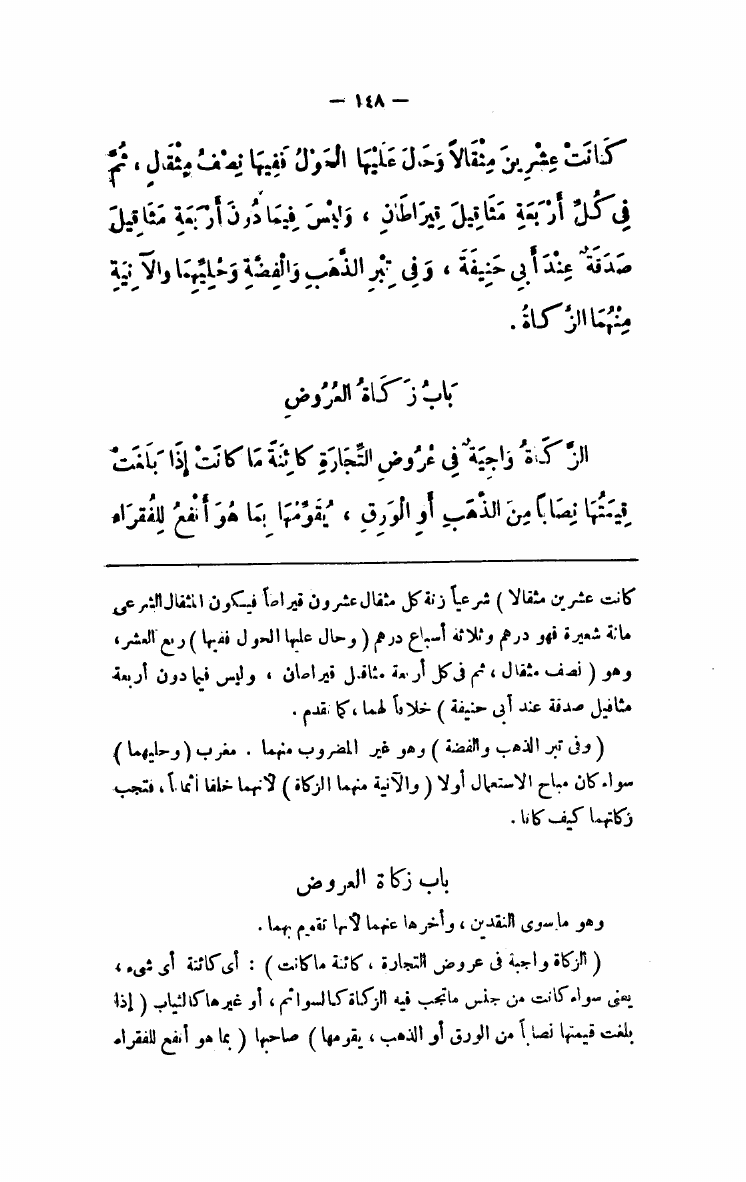 — ١٤٨ —
كَانَتْ عِشْرِينَ مِثْقَالاً وَحَالَ عَلَيْهَا الْحَوْلُ فَفِيهَا نِصْفُ مِثْقَالٍ ، ثُمَّ
فِي كُلِّ أَرْبَعَةِ مَثَاقِيلَ قِيرَاطَانِ ، وَلَيْسَ فِيمَا دُونَ أَرْبَعَةِ مَثَاقِيلَ
صَدَقَةٌ عِنْدَ أَبِي حَنِيفَةَ ، وَفِي تِبْرِ الذَّهَبِ وَالْفِضَّةِ وَحُلِيِّهِمَا وَالْآنِيَةِ
مِنْهُمَا الزَّكَاةُ .
بَابُ زَكَاةِ الْعُرُوضِ
الزَّكَاةُ وَاجِبَةٌ فِي عُرُوضِ التِّجَارَةِ كَائِنَةً مَا كَانَتْ إِذَا بَلَغَتْ
قِيمَتُهَا نِصَاباً مِنَ الذَّهَبِ أَوِ الْوَرِقِ ، يُقَوِّمُهَا بِمَا هُوَ أَنْفَعُ لِلْفُقَرَاءِ
كانت عشرين مثقالا ) شرعياً زنة كل مثقال عشرون قيراطاً فيكون المثقال الشرعي
مائة شعيرة فهو درهم وثلاثة أسباع درهم ( وحال عليها الحول ففيها ) ربع العشر ،
وهو ( نصف مثقال ، ثم في كل أربعة مثاقيل قيراطان ، وليس فيما دون أربعة
مثاقيل صدقة عند أبي حنيفة ) خلافاً لهما ، كما تقدم .
( وفي تبر الذهب والفضة ) وهو غير المضروب منهما . مغرب ( وحليهما )
سواء كان مباح الاستعمال أولا ( والآنية منهما الزكاة ) لأنهما خلقا أثماناً ، فتجب
زكاتهما كيف كانا .
باب زكاة العروض
وهو ما سوى النقدين ، وأخرها عنهما لأنها تقوم بهما .
( الزكاة واجبة في عروض التجارة ، كائنة ما كانت ) : أي كائنة أي شيء ،
يعني سواء كانت من جنس ما تجب فيه الزكاة كالسوائم ، أو غيرها كالثياب ( إذا
بلغت قيمتها نصاباً من الورق أو الذهب ، يقومها ) صاحبها ( بما هو أنفع للفقراء